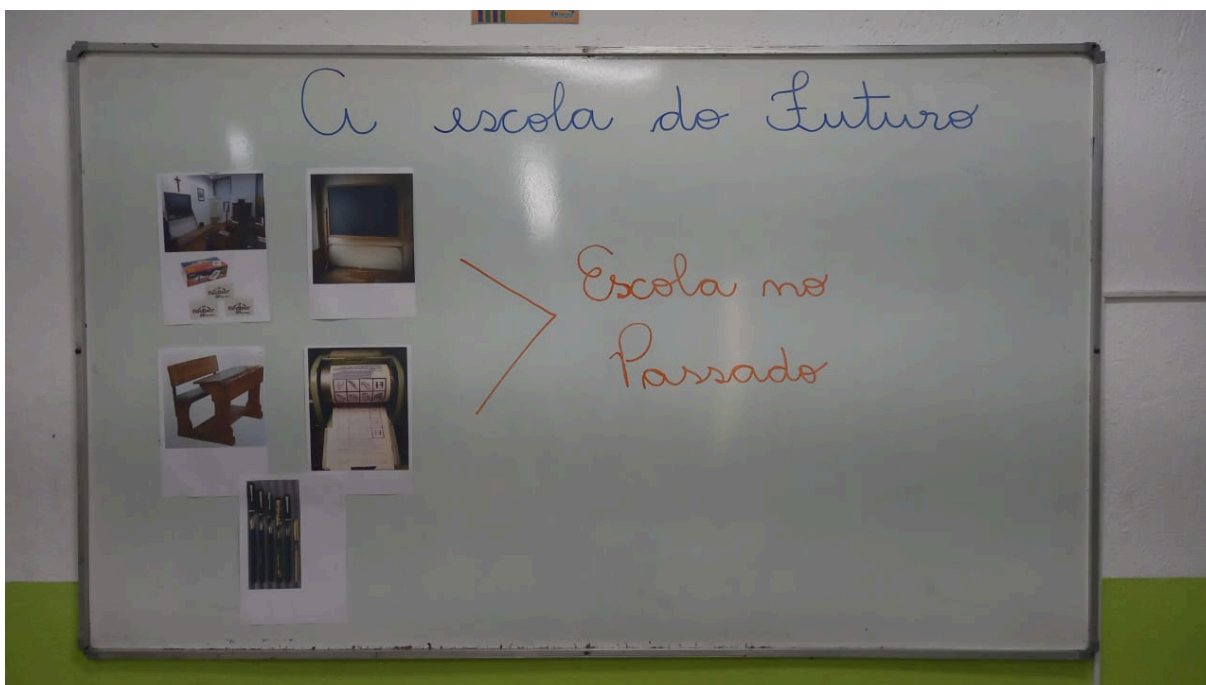 A escola do Futuro
Escola no
Passado